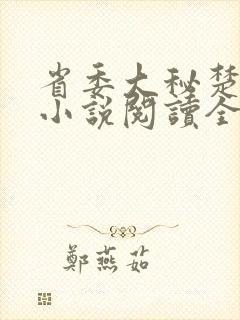 省委大秘楚
小說閱讀全
鄭燕茹